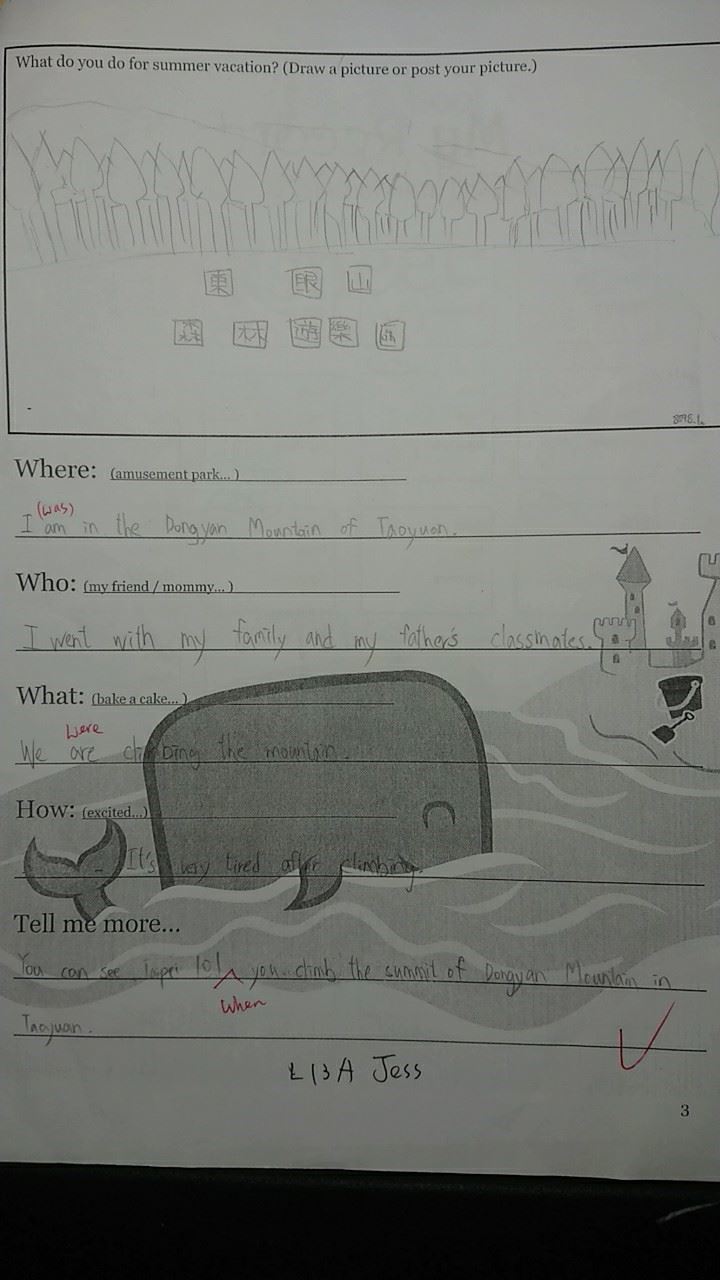 What do you do for summer vacation? (Draw a picture or post your picture.)
東 眼 山
森 林 遊 樂 區
Where: (amusement park... )
(was)
I am in the Dongyan Mountain of Taoyuan.
Who: (my friend / mommy... )
I went with my family and my father's classmates.
What: (bake a cake... )
were
We are climbing the mountain.
How: (excited...)
It's very tired after climbing.
Tell me more...
You can see Taipei 101 you climb the summit of Dongyan Mountain in
when
Taoyuan.
L13A Jess
3